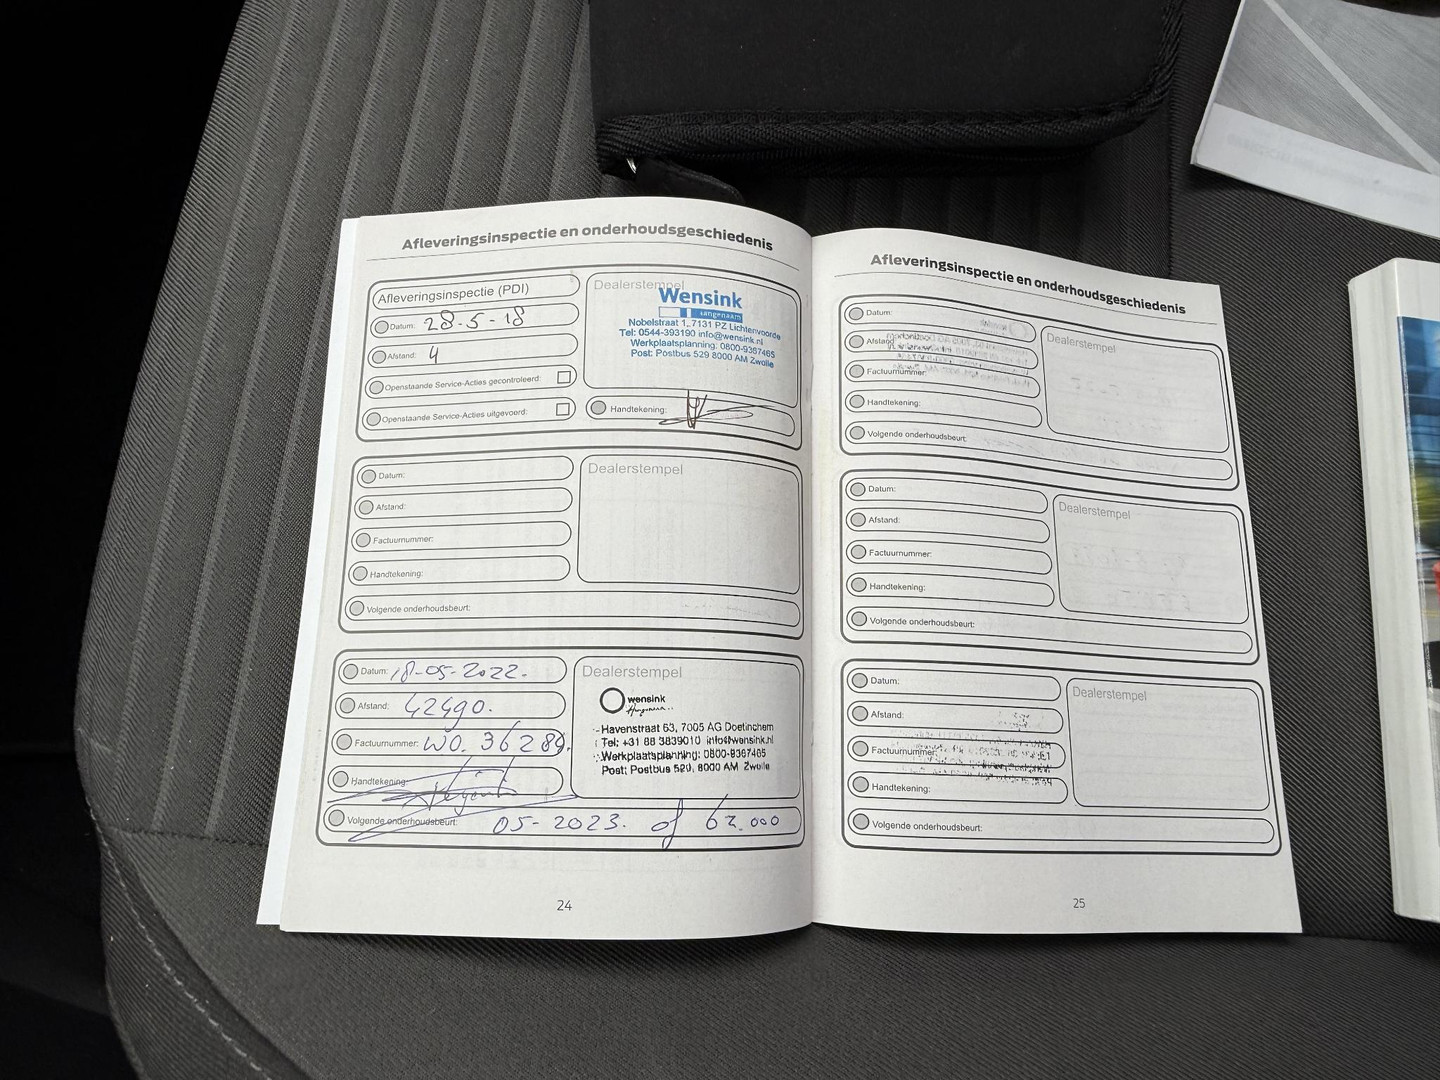 Afleveringsinspectie en onderhoudsgeschiedenis
Afleveringsinspectie (PDI)
Datum: 28-5-18
Afstand: 4
Openstaande Service-Acties gecontroleerd:
Openstaande Service-Acties uitgevoerd:
Dealerstempel
Wensink
Nobelstraat 1, 7131 PZ Lichtenvoorde
Tel: 0544-393190 info@wensink.nl
Werkplaatsplanning: 0800-9367465
Post: Postbus 529 8000 AM Zwolle
Handtekening:
Datum:
Afstand:
Factuurnummer:
Handtekening:
Volgende onderhoudsbeurt:
Dealerstempel
Datum: 18-05-2022.
Afstand: 42490.
Factuurnummer: WO. 36289.
Handtekening:
Volgende onderhoudsbeurt: 05-2023. of 62.000
Dealerstempel
wensink
Havenstraat 63, 7005 AG Doetinchem
Tel: +31 88 3839010 info@wensink.nl
Werkplaatsplanning: 0800-9367465
Post: Postbus 529, 8000 AM Zwolle
24
Afleveringsinspectie en onderhoudsgeschiedenis
Datum:
Afstand:
Factuurnummer:
Handtekening:
Volgende onderhoudsbeurt:
Dealerstempel
Datum:
Afstand:
Factuurnummer:
Handtekening:
Volgende onderhoudsbeurt:
Dealerstempel
Datum:
Afstand:
Factuurnummer:
Handtekening:
Volgende onderhoudsbeurt:
Dealerstempel
25